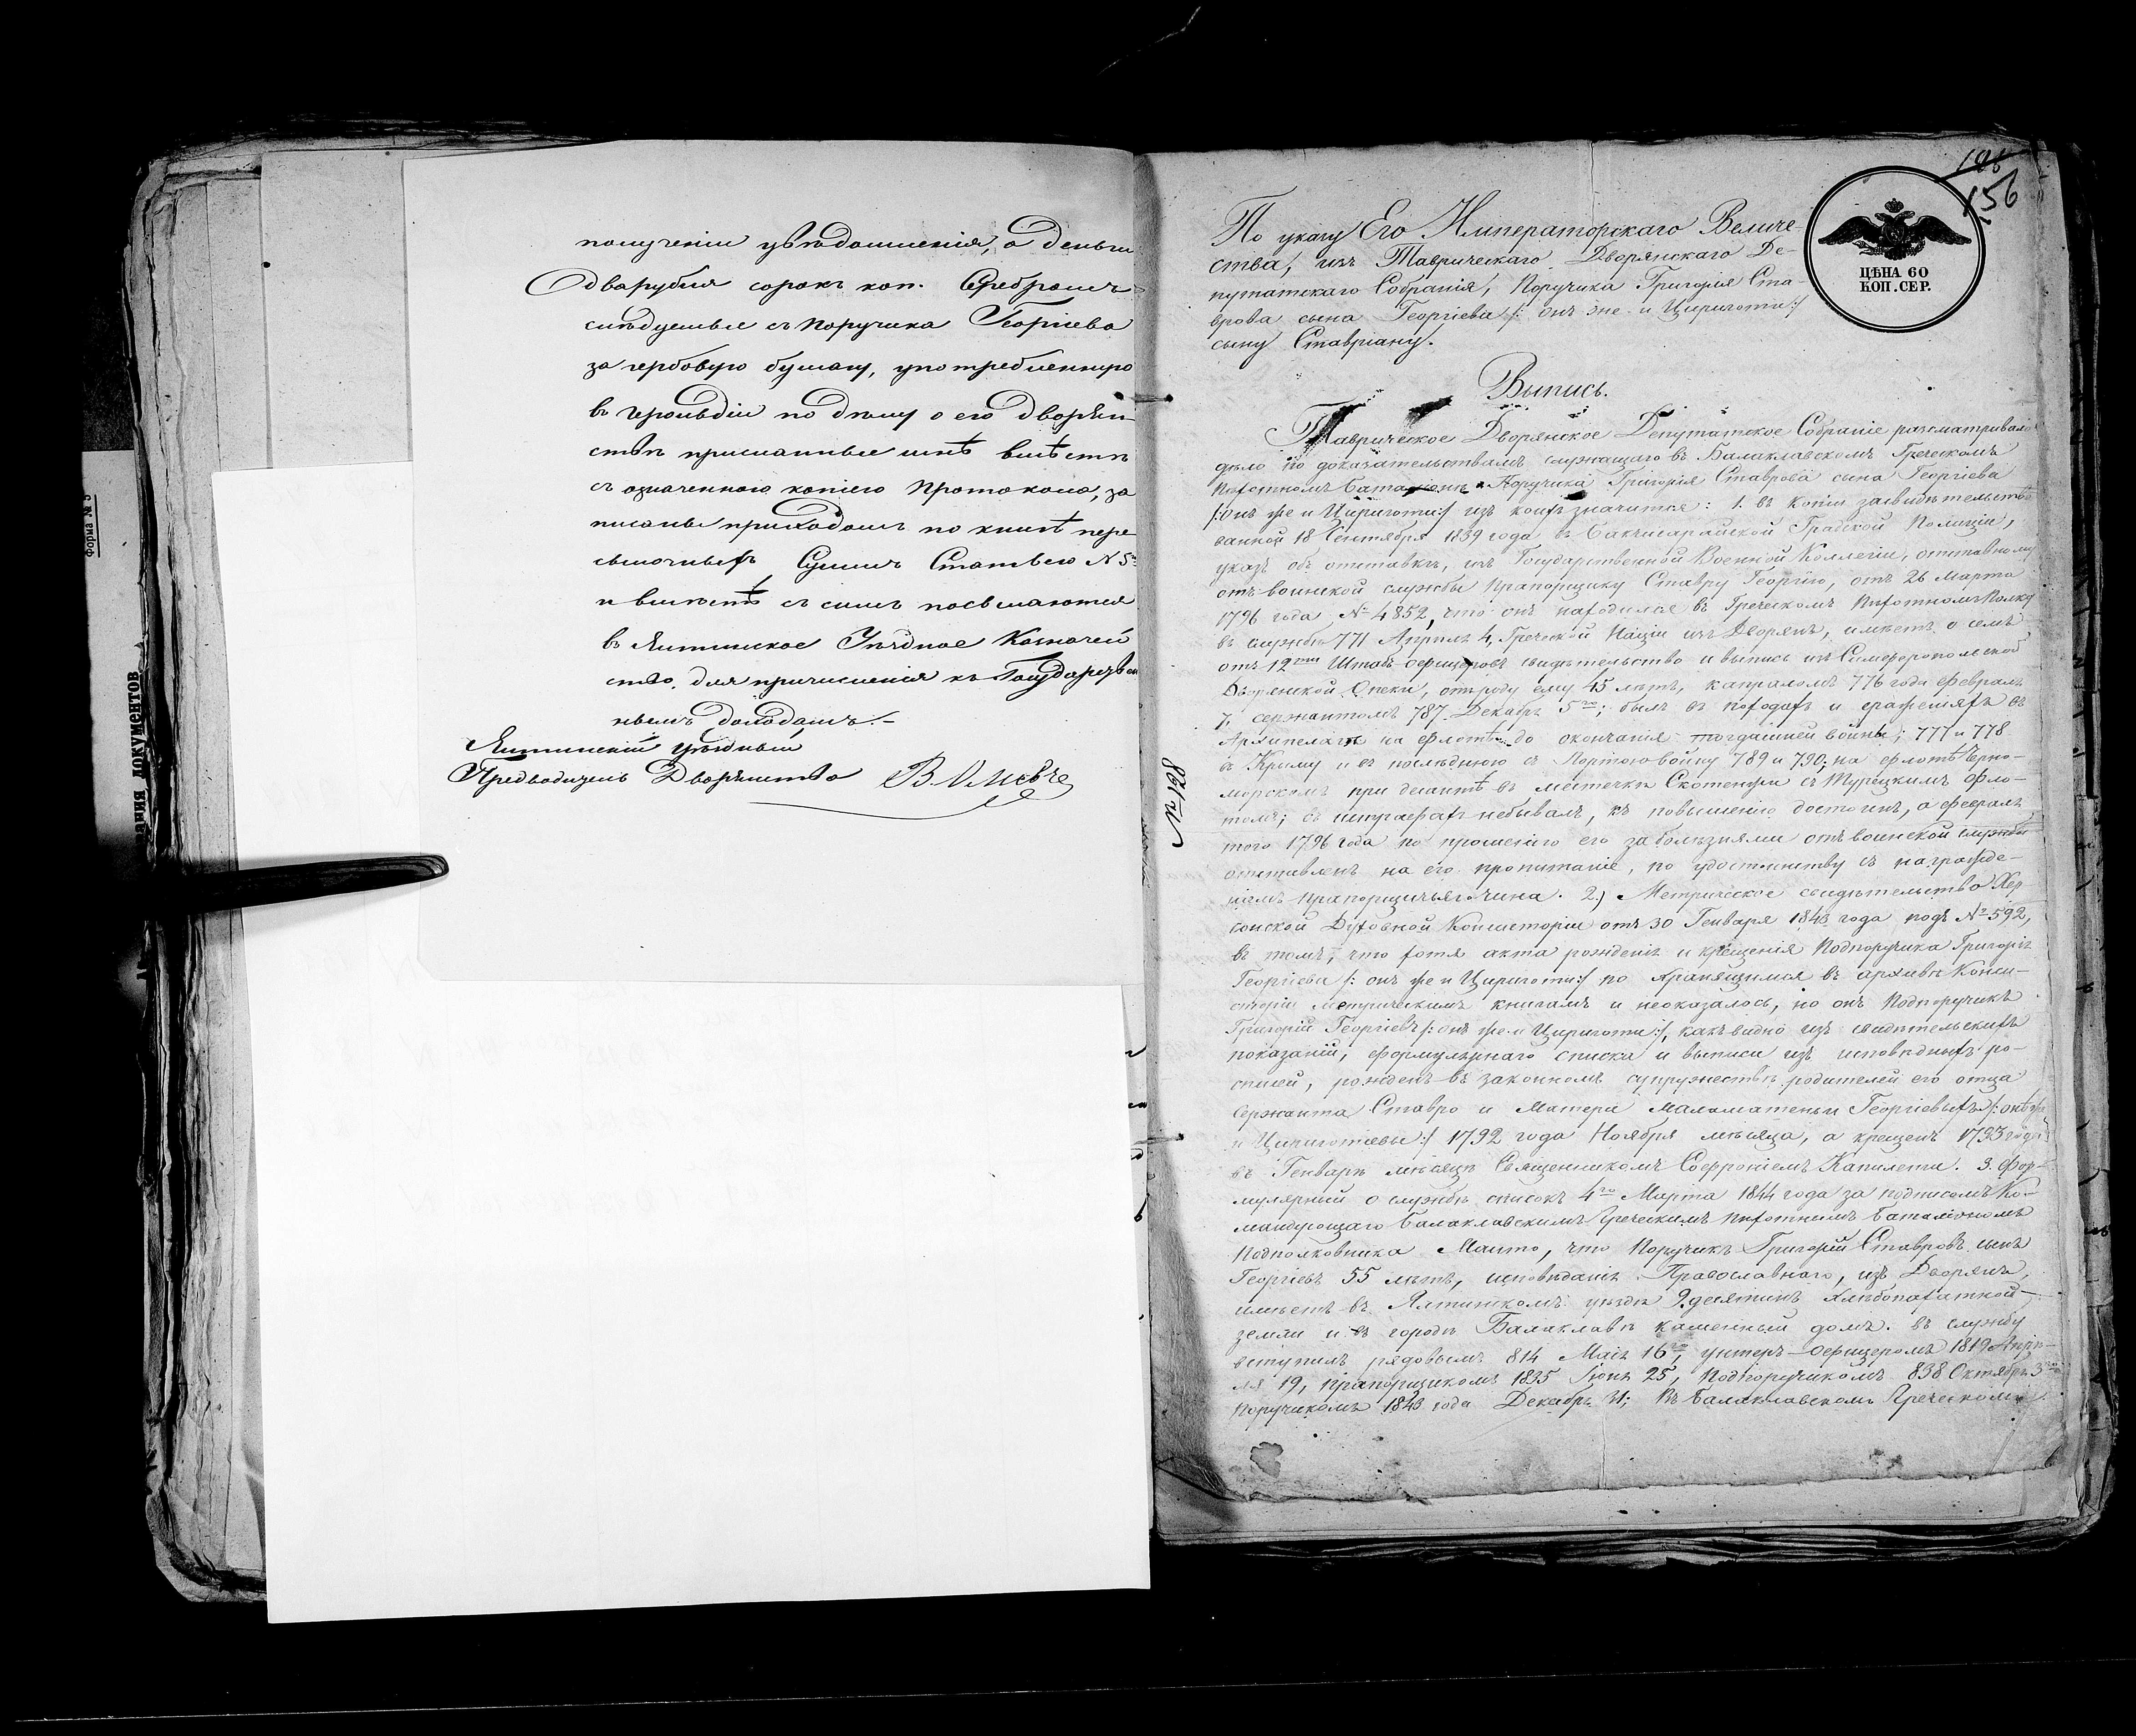 полученіи увѣдомленія, а деньги
два рубля сорокъ коп. Серебромъ
слѣдуемые съ Поручика Георгіева
за гербовую бумагу, употребленную
въ Герольдіи по дѣлу о его дворян-
ствѣ присланные мнѣ вмѣстѣ
съ означенною копіею Протокола, за
писаны приходомъ по книгѣ пере
сылочныхъ Суммъ Статьею N 5
и вмѣстѣ съ симъ посылаются
въ Ялтинское Уѣздное Казначей
ство, для причисленія къ Государствен
нымъ доходамъ.-
Ялтинскій уѣздный
Предводитель Дворянства
Форма № 5
ДОКУМЕНТОВ
186
156
ЦѢНА 60
КОП. СЕР.
По указу Его Императорскаго Величе-
ства, изъ Таврическаго Дворянскаго Де-
путатскаго Собранія, Поручика Григорія Ста-
врова сына Георгіева /: онъ же и Цириготи:/
сыну Ставріану.
Выпись.
Таврическое Дворянское Депутатское Собраніе разсматривало
дѣло по доказательствамъ служащаго въ Балаклавскомъ Греческомъ
Пѣхотномъ Баталіонѣ Поручика Григорія Ставрова сына Георгіева
/: онъ же и Цириготи:/ изъ коихъ значится: 1. въ копіи засвидѣтельство
ванной 18 Сентября 1839 года въ Бакчисарайской Градской Полиціи,
указъ объ отставкѣ, изъ Государственной Военной Коллегіи, отставному
отъ воинской службы Прапорщику Ставру Георгію, отъ 26 Марта
1796 года, № 4852, что онъ находился въ Греческомъ Пѣхотномъ Полку
въ службѣ 771 Апрѣля 4, Греческой Націи изъ Дворянъ, имѣетъ о семъ
отъ 12ти Штабъ-офицеровъ свидѣтельство и выпись изъ Симферопольской
Дворянской Опеки, отъ роду ему 45 лѣтъ, капраломъ 776 года февраля
7, сержантомъ 787 Декабря 5го; былъ въ походахъ и сраженіяхъ въ
Архипелагѣ на флотѣ до окончанія тогдашней войны; 777 и 778
въ Крыму и въ послѣднюю съ Портою войну 789 и 790, на флотѣ Черно-
морскомъ при десантѣ въ мѣстечкѣ съ Турецкимъ фло-
томъ; въ штрафахъ небывалъ, къ повышенію достоинъ, а февраля
того 1796 года по прошенію его за болѣзнями отъ воинской службы
отставленъ на его пропитаніе, по удостоинству съ награжде-
ніемъ Прапорщичьяго чина. 2.) Метрическое свидѣтельство Хер-
сонской Духовной Консисторіи отъ 30 Генваря 1843 года подъ № 592,
въ томъ, что хотя акта рожденія и крещенія Подпоручика Григорія
Георгіева /: онъ же и Цириготи:/ по хранящимся въ архивѣ Конси-
сторіи метрическимъ книгамъ и неоказалось, но онъ Подпоручикъ
Григорій Георгіевъ /: онъ же и Цириготи:/, какъ видно изъ свидѣтельскихъ
показаній, формулярнаго списка и выписи изъ исповѣдныхъ ро-
списей, рожденъ въ законномъ супружествѣ родителей его отца
Сержанта Ставро и Матери Маламатеньи Георгіевыхъ /: онѣ же
и Цириготіевы:/ 1792 года Ноября мѣсяца, а крещенъ 1793 года
въ Генварѣ мѣсяцѣ Священникомъ Софроніемъ Капилети. 3. Фор-
мулярный о службѣ списокъ 4го Марта 1844 года за подписомъ Ко-
мандующаго Балаклавскимъ Греческимъ Пѣхотнымъ Баталіономъ
Подполковника Манто, что Поручикъ Григорій Ставровъ сынъ
Георгіевъ 55 лѣтъ, исповѣданія Православнаго, изъ Дворянъ,
имѣетъ въ Ялтинскомъ уѣздѣ 9 десятинъ хлѣбопахатной
земли и въ городѣ Балаклавѣ каменный домъ. въ службу
вступилъ рядовымъ 814 Маія 16го, унтеръ-офицеромъ 1819 Апрѣ-
ля 19, Прапорщикомъ 1835 Іюня 25, Подпоручикомъ 838 Октября 3го
Поручикомъ 1843 года Декабря 31; въ Балаклавскомъ Греческомъ
№ 128